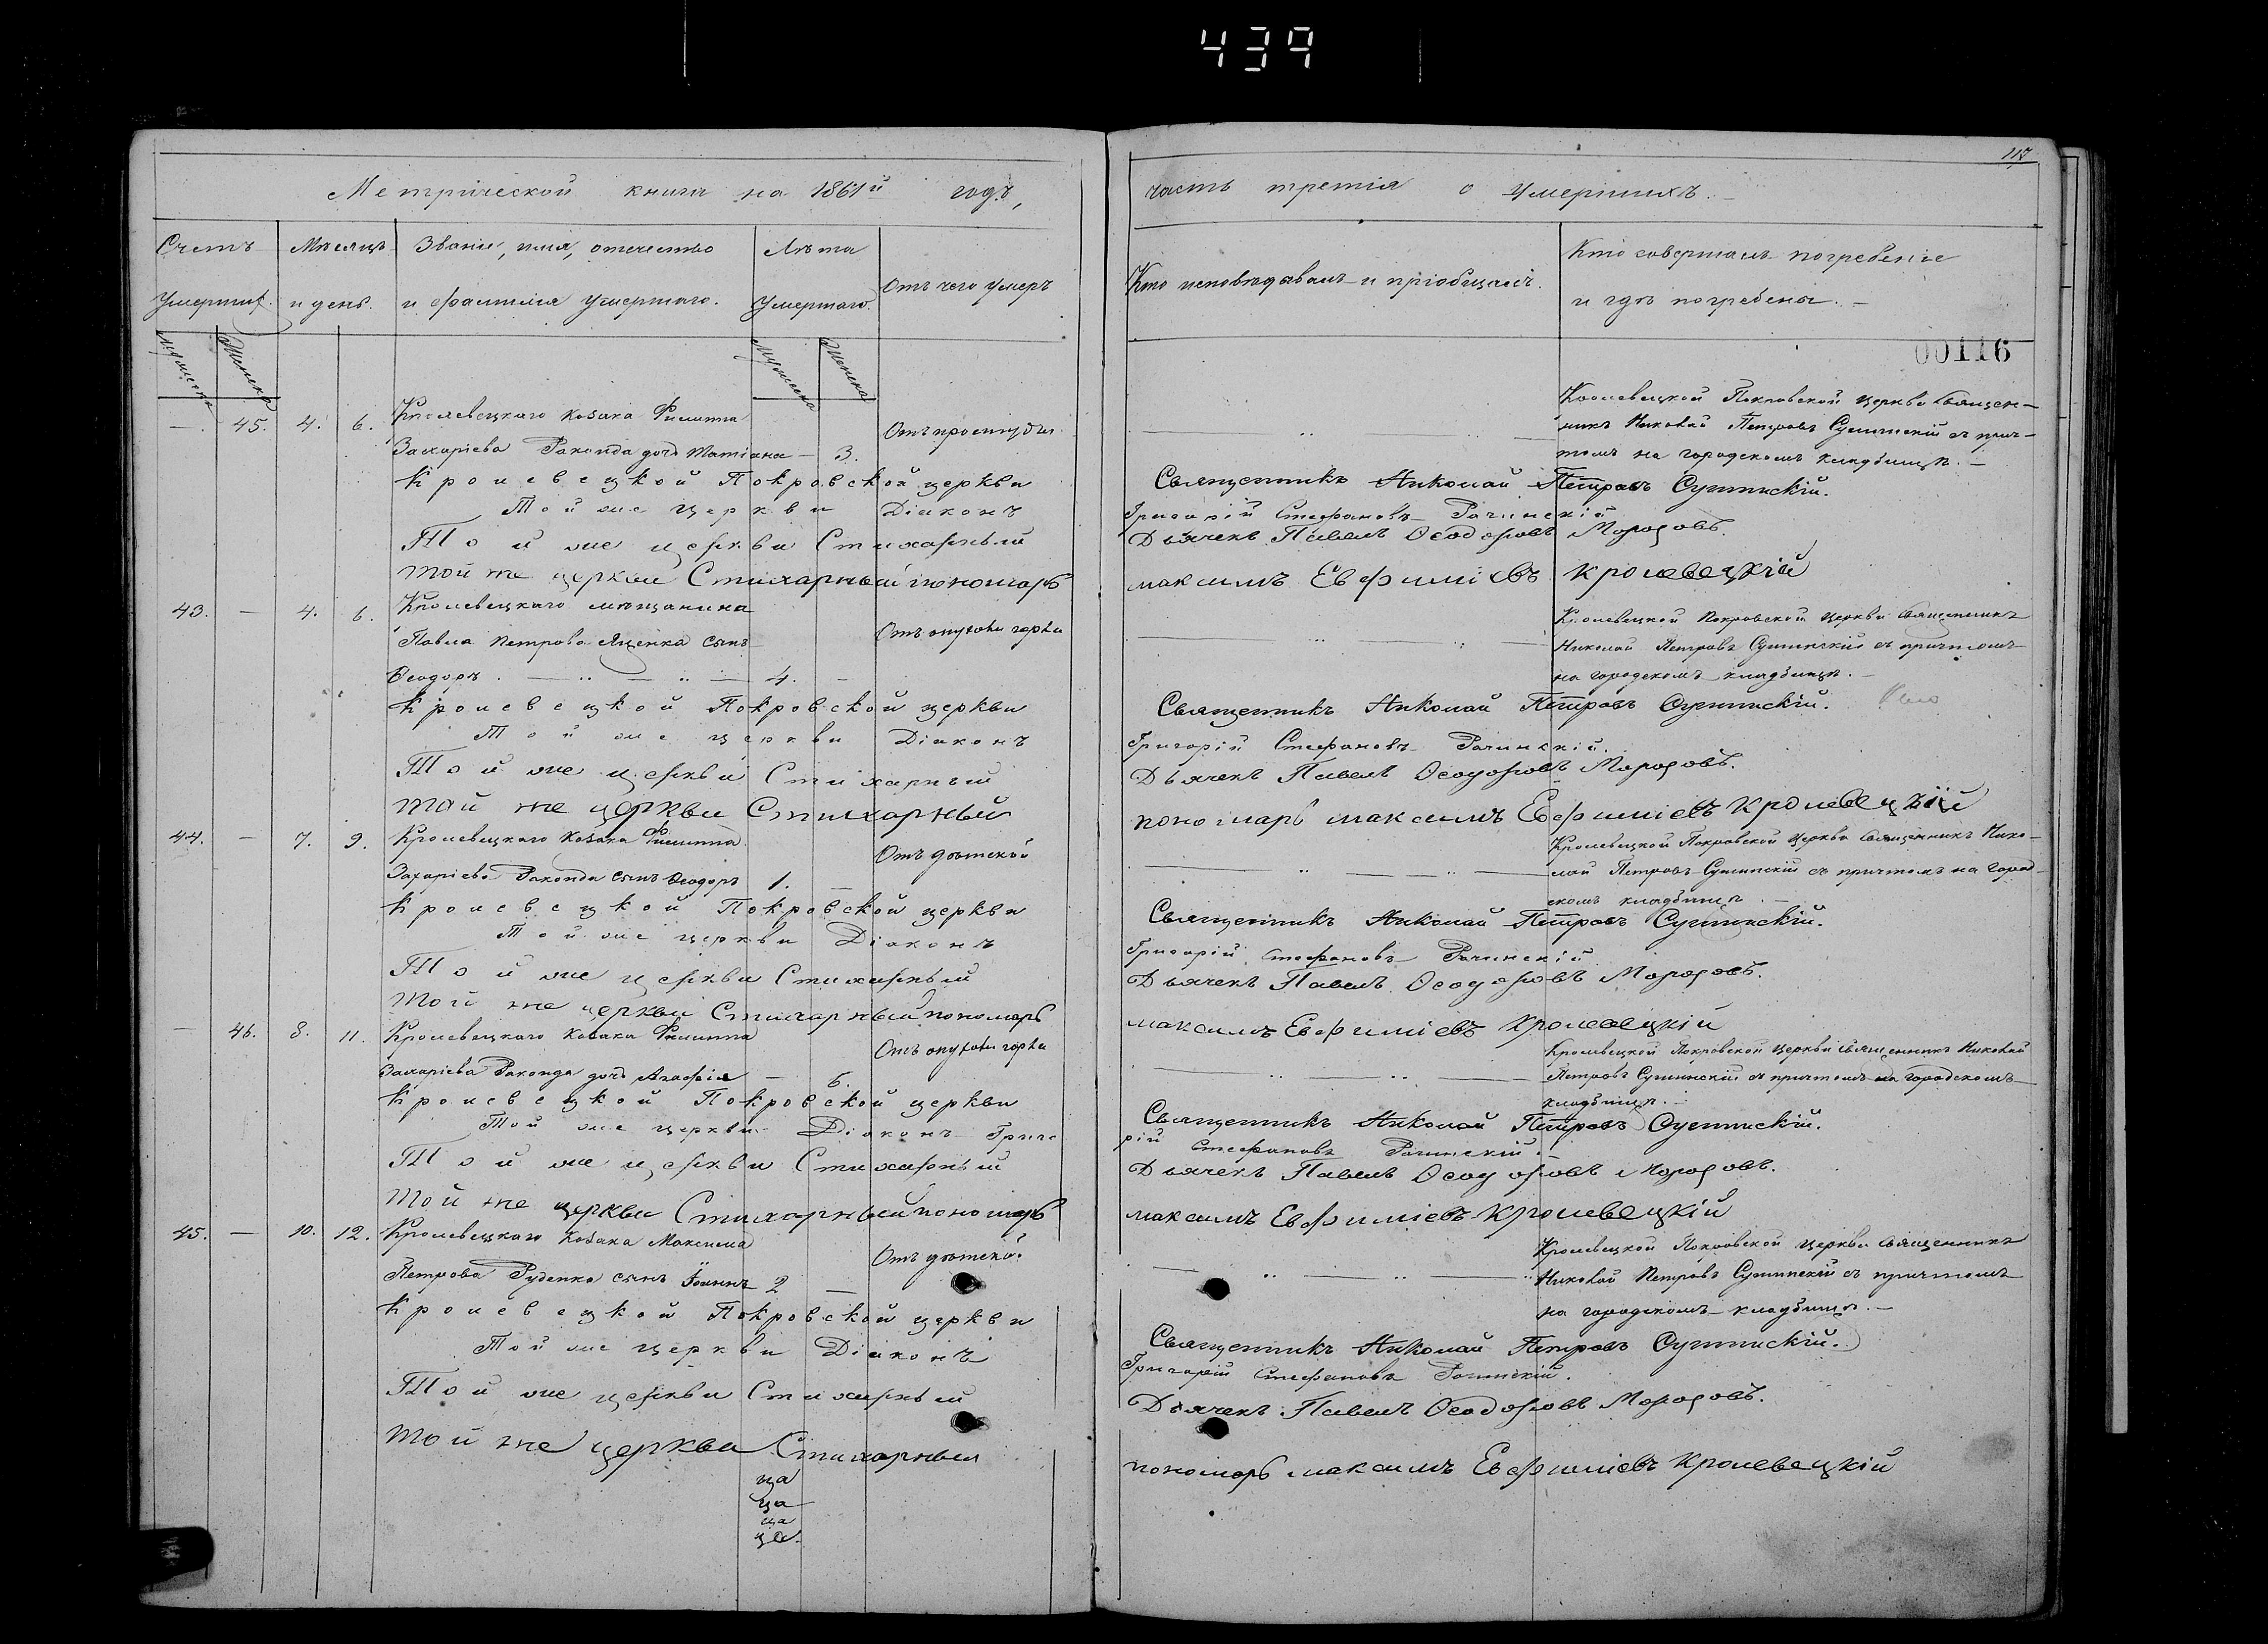 439
117
Метрической книги на 1861й годъ,
часть третія о умершихъ.
Счетъ умершихъ.
Мѣсяцъ и день.
Званіе, имя, отечество
и фамилія умершаго.
Лѣта
умершаго.
Отъ чего умеръ
Кто исповѣдывалъ и пріобщалъ.
Кто совершалъ погребеніе
и гдѣ погребены.
мужеска
женска
мужеска
женска
00116
— 45. 4. 6. Кролевецкаго козака Филиппа
Захаріева Раконда дочь Татіана — 3.
Отъ простуды
Кролевецкой Покровской церкви Священ-
никъ Николай Петровъ Сушинскій съ прич-
томъ на городскомъ кладбищѣ. —
Кролевецкой Покровской церкви Священникъ Николай Петровъ Сушинскій.
Той же церкви Діаконъ Григорій Стефановъ Рачинскій
Той же церкви Стихарный Дьячекъ Павелъ Ѳеодоровъ Морозовъ.
той же церкви Стихарный пономарь максимъ Евфиміевъ кролевецкій
43. — 4. 6. Кролевецкаго мѣщанина
Павла Петрова Яценка сынъ
Ѳеодоръ. — 4. —
Отъ опухоли горла
Кролевецкой Покровской церкви Священникъ
Николай Петровъ Сушинскій съ причтомъ
на городскомъ кладбищѣ. —
Кролевецкой Покровской церкви Священникъ Николай Петровъ Сушинскій.
Той же церкви Діаконъ Григорій Стефановъ Рачинскій.
Той же церкви Стихарный Дьячекъ Павелъ Ѳеодоровъ Морозовъ.
той же церкви Стихарный пономарь максимъ Евфиміевъ кролевецкій
44. — 7. 9. Кролевецкаго козака Филиппа
Захаріева Раконда сынъ Ѳеодоръ 1. —
Отъ дѣтской
Кролевецкой Покровской церкви Священникъ Нико-
лай Петровъ Сушинскій съ причтомъ на город-
скомъ кладбищѣ. —
Кролевецкой Покровской церкви Священникъ Николай Петровъ Сушинскій.
Той же церкви Діаконъ Григорій Стефановъ Рачинскій
Той же церкви Стихарный Дьячекъ Павелъ Ѳеодоровъ Морозовъ.
той же церкви Стихарный пономарь максимъ Евфиміевъ кролевецкій
— 46. 8. 11. Кролевецкаго козака Филиппа
Захаріева Раконда дочь Агафія — 6.
Отъ опухоли горла
Кролевецкой Покровской церкви Священникъ Николай
Петровъ Сушинскій съ причтомъ на городскомъ
кладбищѣ. —
Кролевецкой Покровской церкви Священникъ Николай Петровъ Сушинскій.
Той же церкви Діаконъ Григорій Стефановъ Рачинскій.
Той же церкви Стихарный Дьячекъ Павелъ Ѳеодоровъ Морозовъ.
той же церкви Стихарный пономарь максимъ Евфиміевъ кролевецкій
45. — 10. 12. Кролевецкаго козака Максима
Петрова Руденка сынъ Іоаннъ 2 —
Отъ дѣтской
Кролевецкой Покровской церкви Священникъ
Николай Петровъ Сушинскій съ причтомъ
на городскомъ кладбищѣ. —
Кролевецкой Покровской церкви Священникъ Николай Петровъ Сушинскій.
Той же церкви Діаконъ Григорій Стефановъ Рачинскій.
Той же церкви Стихарный Дьячекъ Павелъ Ѳеодоровъ Морозовъ.
той же церкви Стихарный пономарь максимъ Евфиміевъ кролевецкій
ца
ца
ца
ца